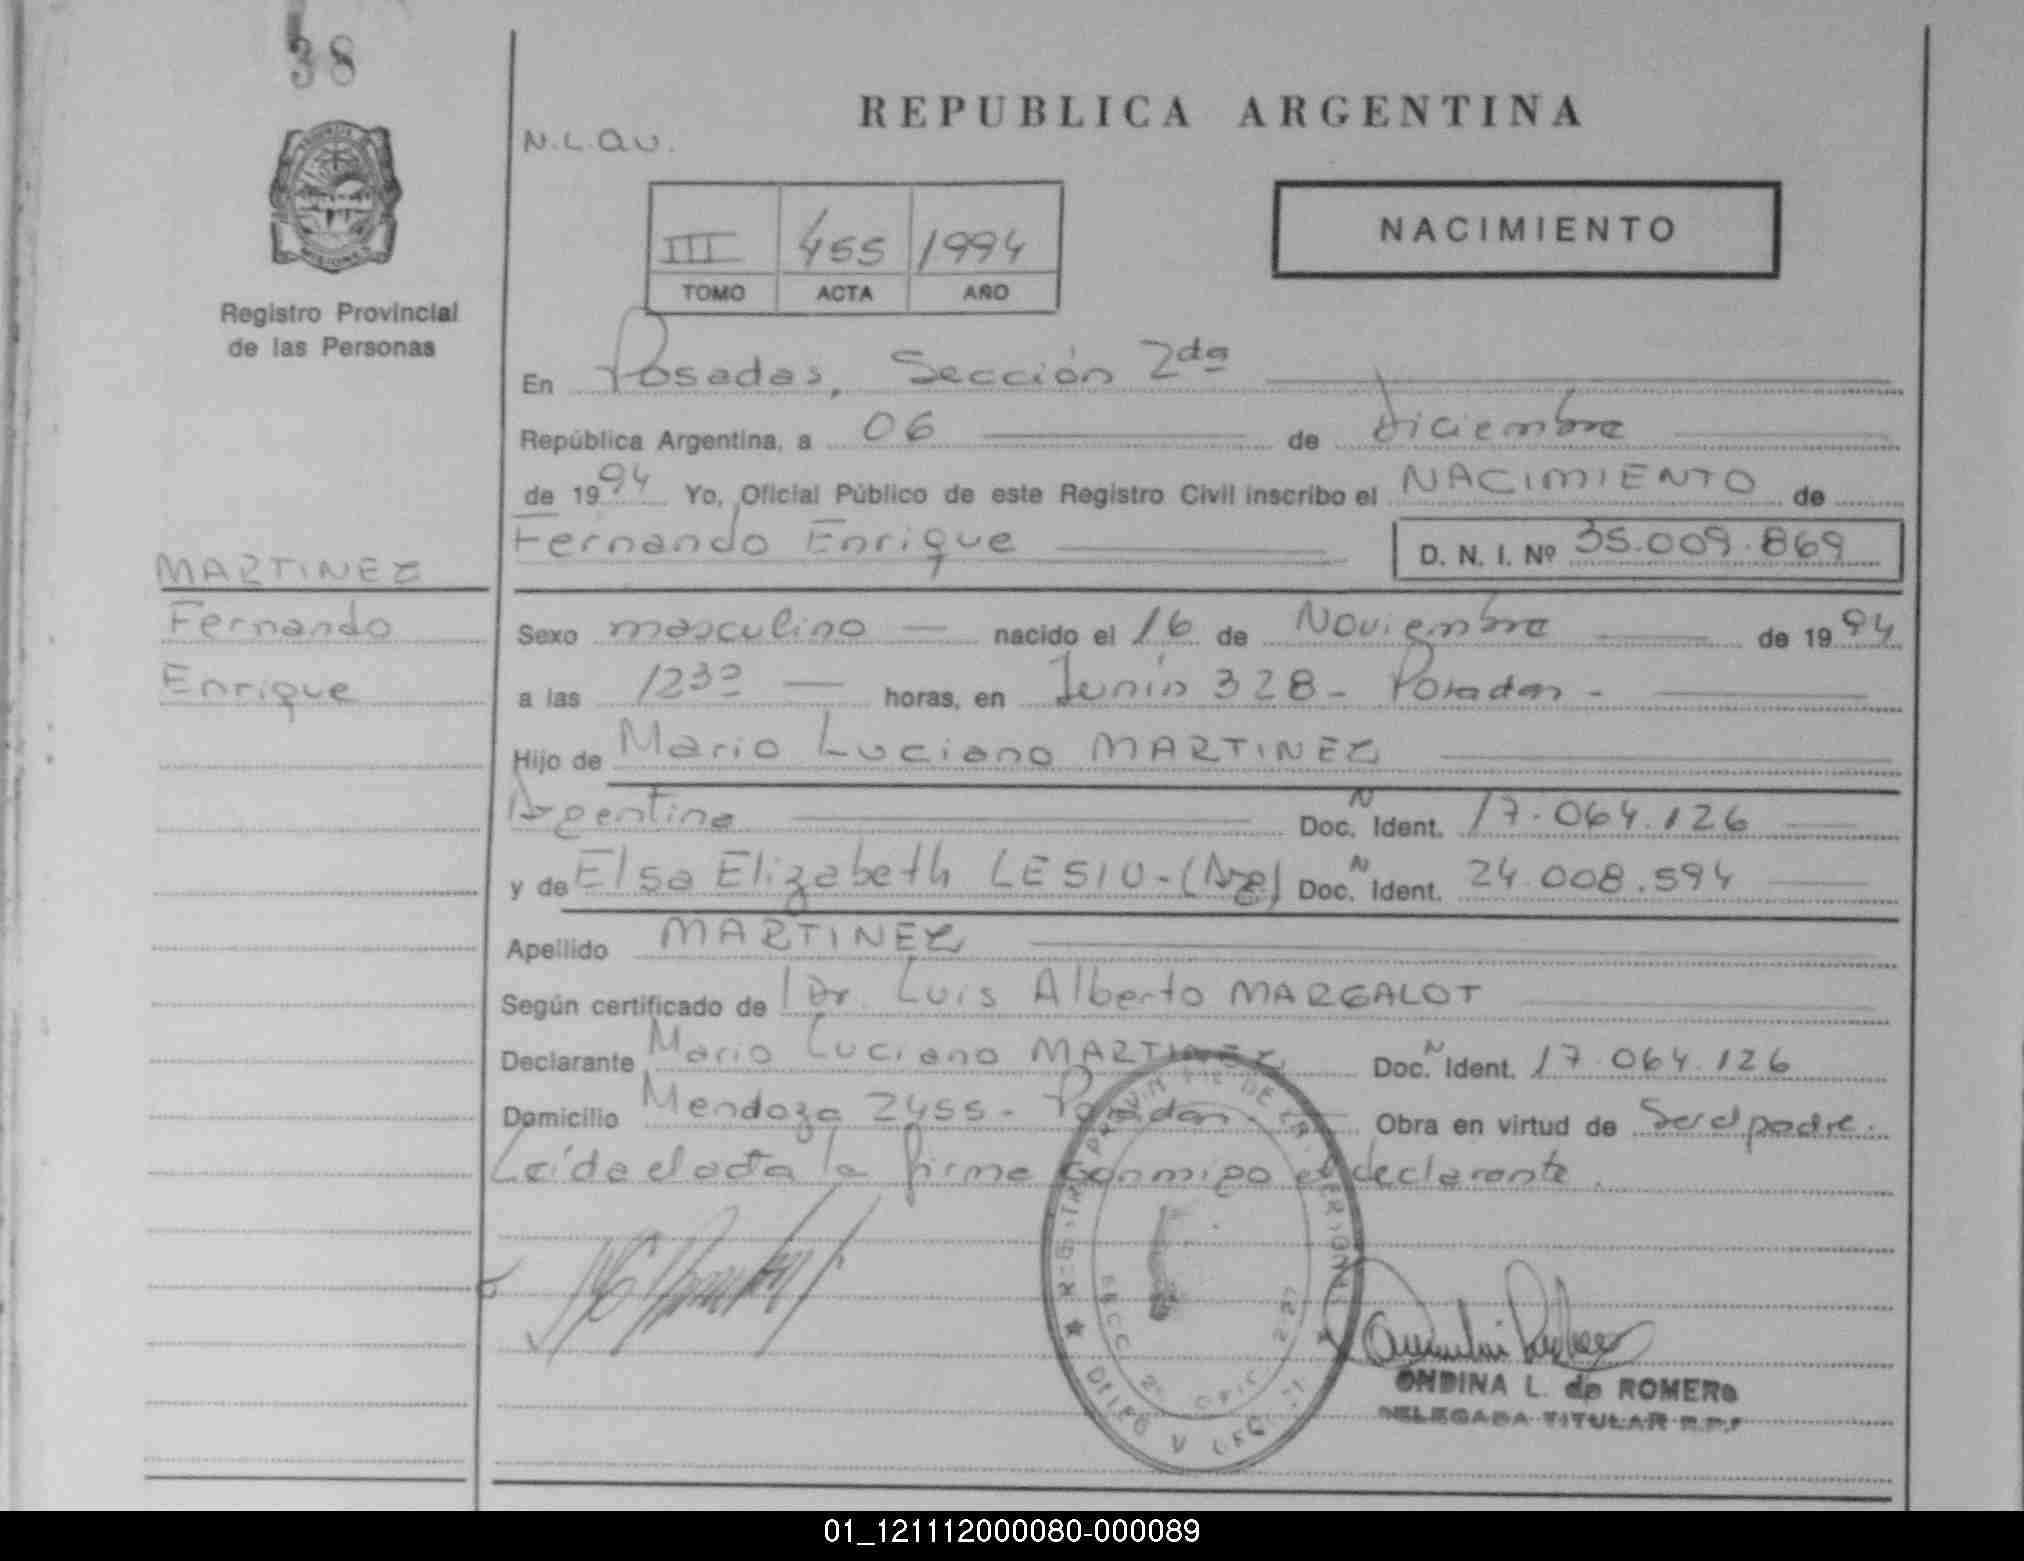 38
REPUBLICA ARGENTINA
N.L.QU.
III 455 1994
TOMO ACTA AÑO
NACIMIENTO
Registro Provincial
de las Personas
En Posadas, Sección 2da
República Argentina, a 06 de diciembre
de 1994 Yo, Oficial Público de este Registro Civil inscribo el NACIMIENTO de
Fernando Enrique D. N. I. Nº 35.009.869
MARTINEZ
Fernando
Enrique
Sexo masculino nacido el 16 de Noviembre de 1994
a las 1230 horas, en Junín 328 - Posadas -
Hijo de Mario Luciano MARTINEZ
Argentina Doc. N Ident. 17.064.126
y de Elsa Elizabeth LESIU - (Arg) Doc. N Ident. 24.008.594
Apellido MARTINEZ
Según certificado de Dr. Luis Alberto MARGALOT
Declarante Mario Luciano MARTINEZ Doc. N Ident. 17.064.126
Domicilio Mendoza 2455 - Posadas - Obra en virtud de Ser el padre.
Leída el acta la firma conmigo el declarante.
ONDINA L. de ROMERO
DELEGADA TITULAR R.P.P
01_121112000080-000089